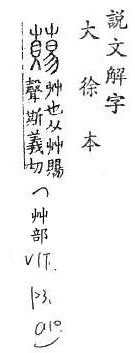 說文解字
大徐本
艸也从艸賜
聲斯義切
艸部